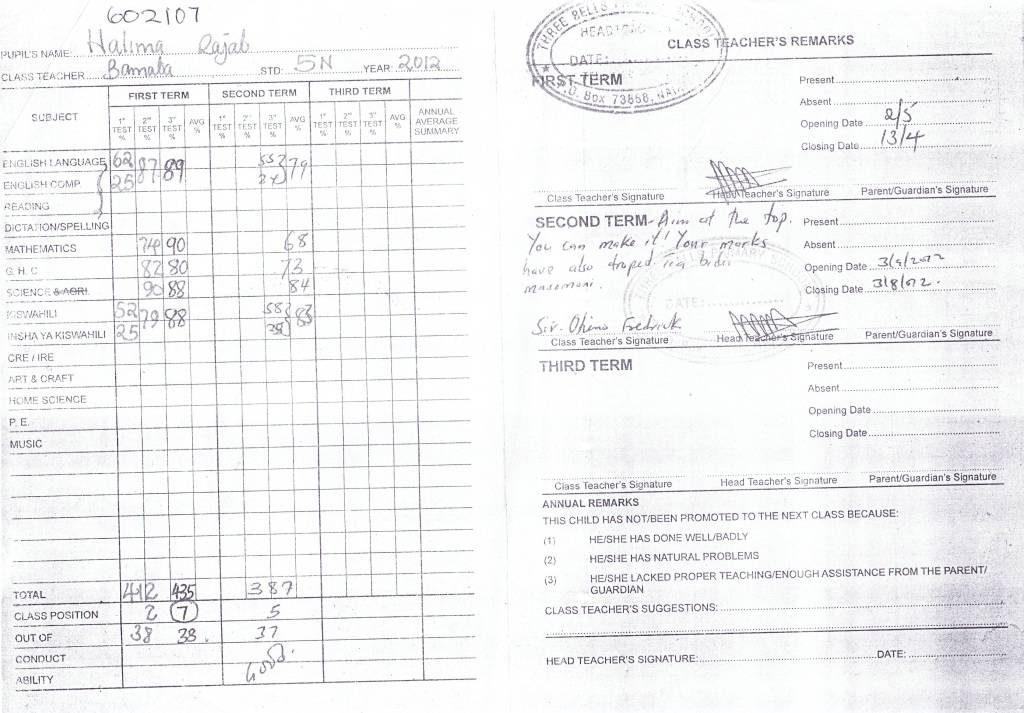 602107
PUPIL'S NAME: Halima Rajab
CLASS TEACHER Barnaba STD: 5N YEAR 2012
SUBJECT FIRST TERM SECOND TERM THIRD TERM ANNUAL AVERAGE SUMMARY
1st TEST % 2nd TEST % 3rd TEST % AVG % 1st TEST % 2nd TEST % 3rd TEST % AVG % 1st TEST % 2nd TEST % 3rd TEST % AVG %
ENGLISH LANGUAGE 62 87 89 79
ENGLISH COMP. 25
READING
DICTATION/SPELLING
MATHEMATICS 74 90 68
G. H. C 82 80 73
SCIENCE & AGRI. 90 88 84
KISWAHILI 52 79 88 83
INSHA YA KISWAHILI 25
CRE / IRE
ART & CRAFT
HOME SCIENCE
P. E.
MUSIC
TOTAL 412 435 387
CLASS POSITION 2 7 5
OUT OF 38 38. 37
CONDUCT Good.
ABILITY
THREE BELLS PRIMARY SCHOOL
HEAD
DATE:
P.O. Box 73858, NAI
CLASS TEACHER'S REMARKS
FIRST TERM Present
Absent
Opening Date 2/5
Closing Date 13/4
Class Teacher's Signature Head Teacher's Signature Parent/Guardian's Signature
SECOND TERM - Aim at the top. Present
You can make it! Your marks Absent
have also droped. Opening Date 3/9/2012
masomoni. Closing Date 3/8/012.
DATE:
Sir. Otieno Fredrick
Class Teacher's Signature Head Teacher's Signature Parent/Guardian's Signature
THIRD TERM Present
Absent
Opening Date
Closing Date
Class Teacher's Signature Head Teacher's Signature Parent/Guardian's Signature
ANNUAL REMARKS
THIS CHILD HAS NOT/BEEN PROMOTED TO THE NEXT CLASS BECAUSE:
(1) HE/SHE HAS DONE WELL/BADLY
(2) HE/SHE HAS NATURAL PROBLEMS
(3) HE/SHE LACKED PROPER TEACHING/ENOUGH ASSISTANCE FROM THE PARENT/
GUARDIAN
CLASS TEACHER'S SUGGESTIONS:
HEAD TEACHER'S SIGNATURE: DATE: